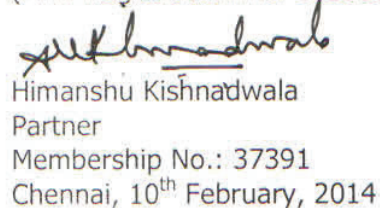 Himanshu Kishnadwala
Partner
Membership No.: 37391
Chennai, 10th February, 2014